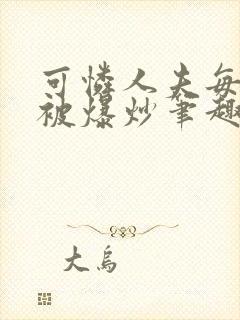 可憐人夫每
被爆炒筆趣
大烏